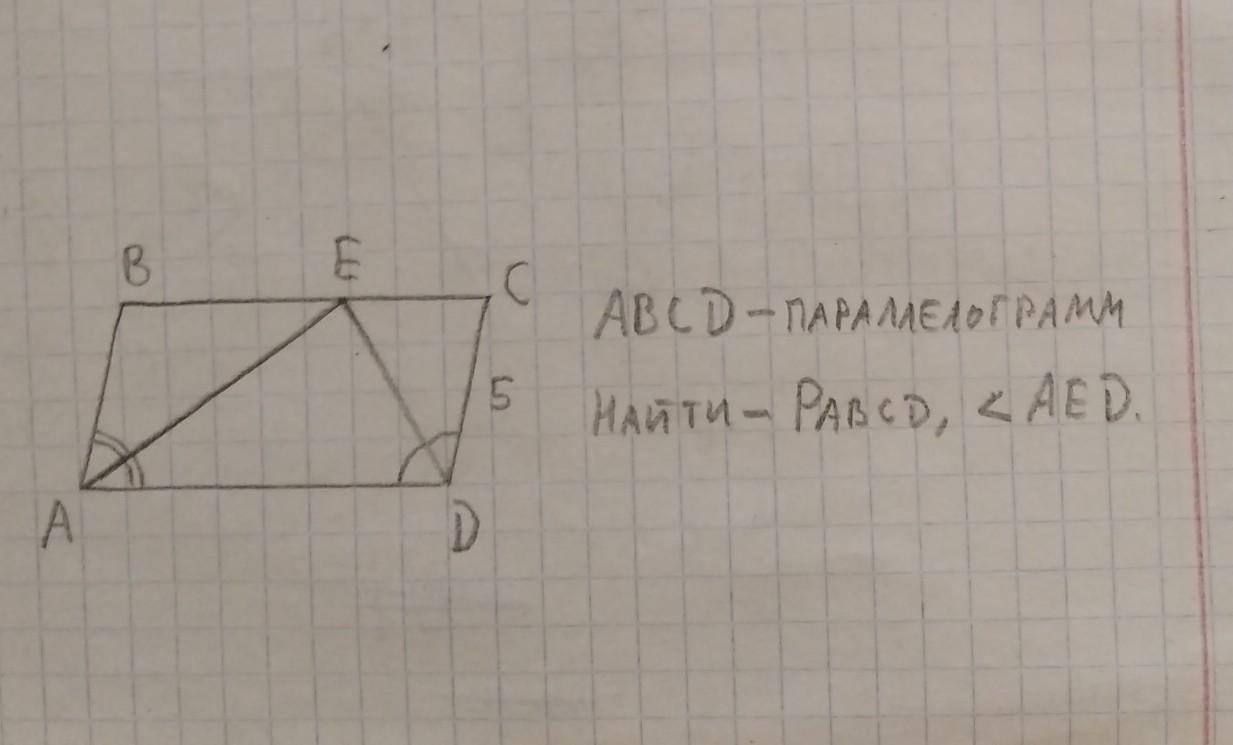 B E C
ABCD - ПАРАЛЛЕЛОГРАММ
5
НАЙТИ - PABCD, < AED.
A D